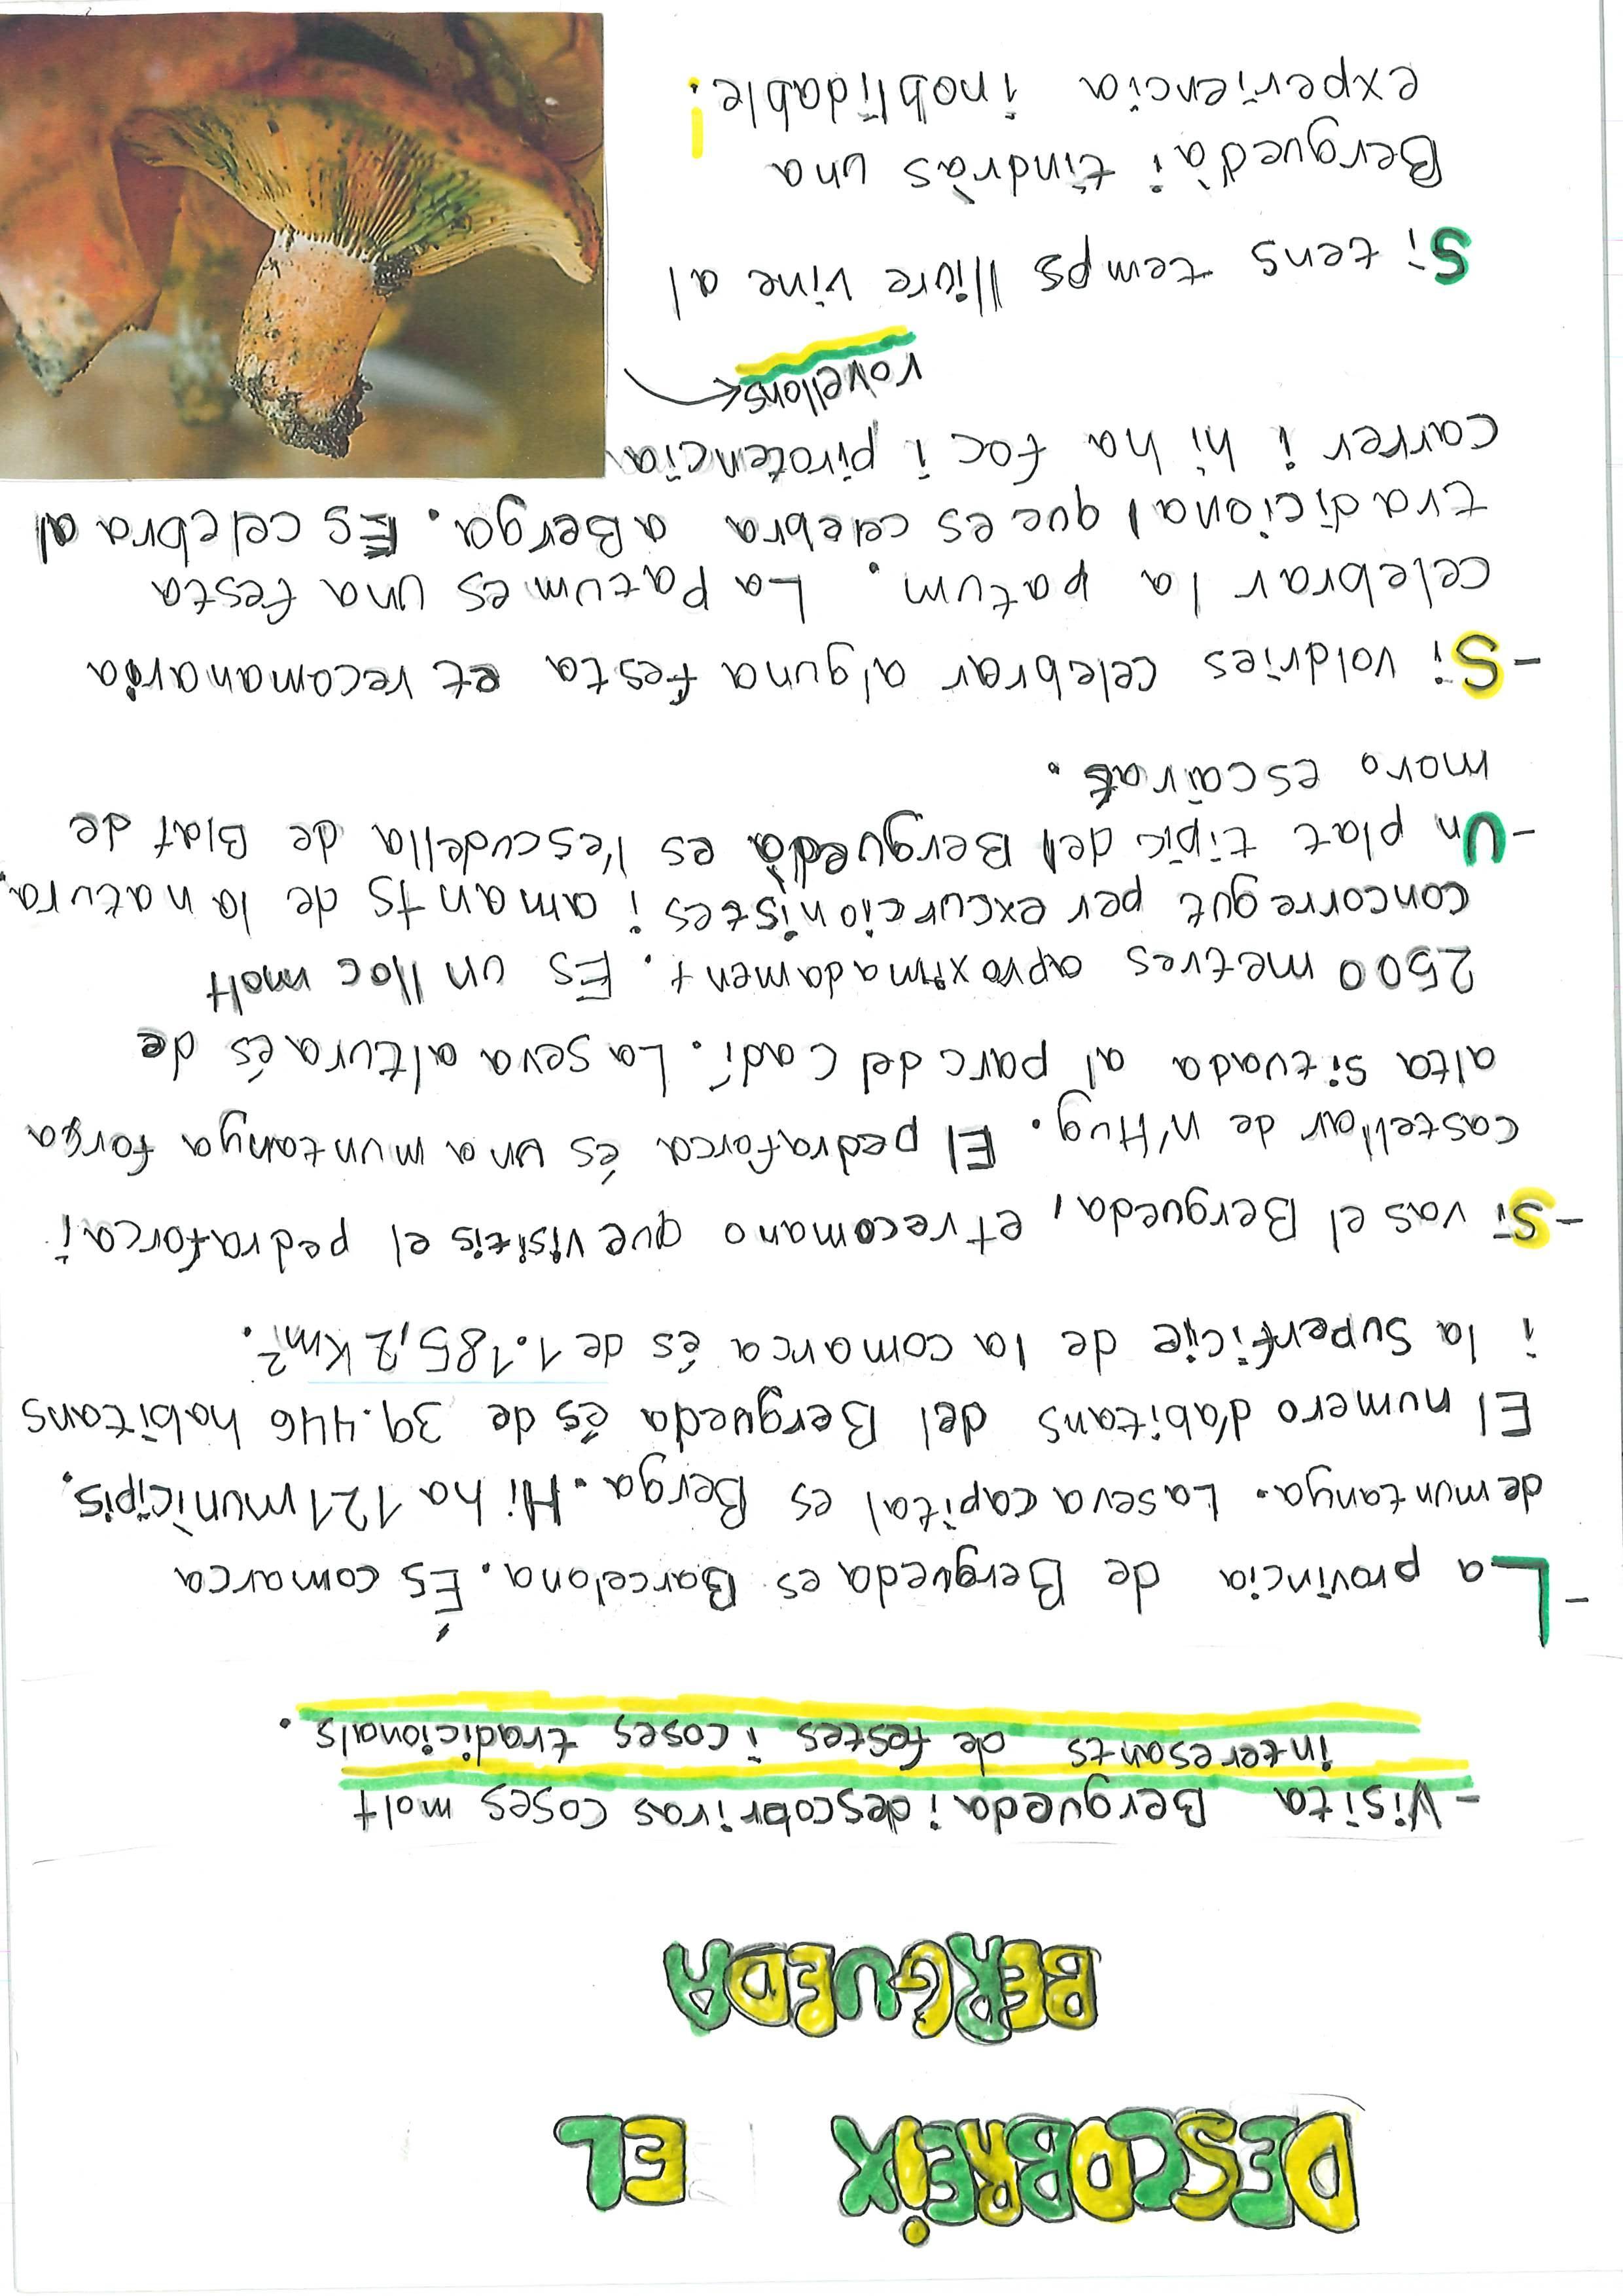 DESCOBREiX EL
BERGUEDA
- Visita Bergueda i descobriras coses molt
interesants de festes i coses tradicionals.
- La provincia de Bergueda es Barcelona. És comarca
de muntanya. La seva capital es Berga. Hi ha 121 municipis.
El numero d'abitans del Bergueda és de 39.446 habitans
i la superficie de la comarca és de 1.185,2 Km².
- Si vas el Bergueda, et recomano que visitis el pedraforca i
castellar de n'Hug. El pedraforca és una muntanya força
alta situada al parc del Cadí. La seva altura és de
2500 metres aproximadament. ES un lloc molt
concorregut per excurcionistes i amants de la natura.
- Un plat típic del Berguedà es l'escudella de Blat de
moro escairat.
- Si voldries celebrar alguna festa et recomanaria
celebrar la patum. La Patum es una festa
tradicional que es celebra a Berga. Es celebra al
carrer i hi ha foc i pirotencia
rovellons
Si tens temps lliure vine al
Berguedà i tindràs una
experiencia inoblidable!